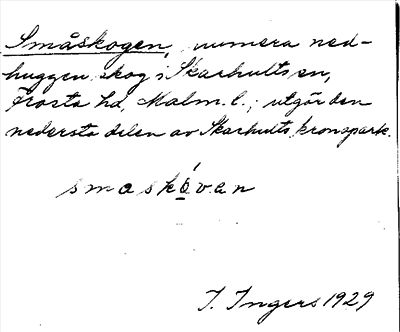 Småskogen, numera ned-
huggen skog i Skarhults sn,
Frosta hd, Malm. l.; utgör den
nedersta delen av Skarhults kronopark.
smaskǫ́van
I. Ingers 1929